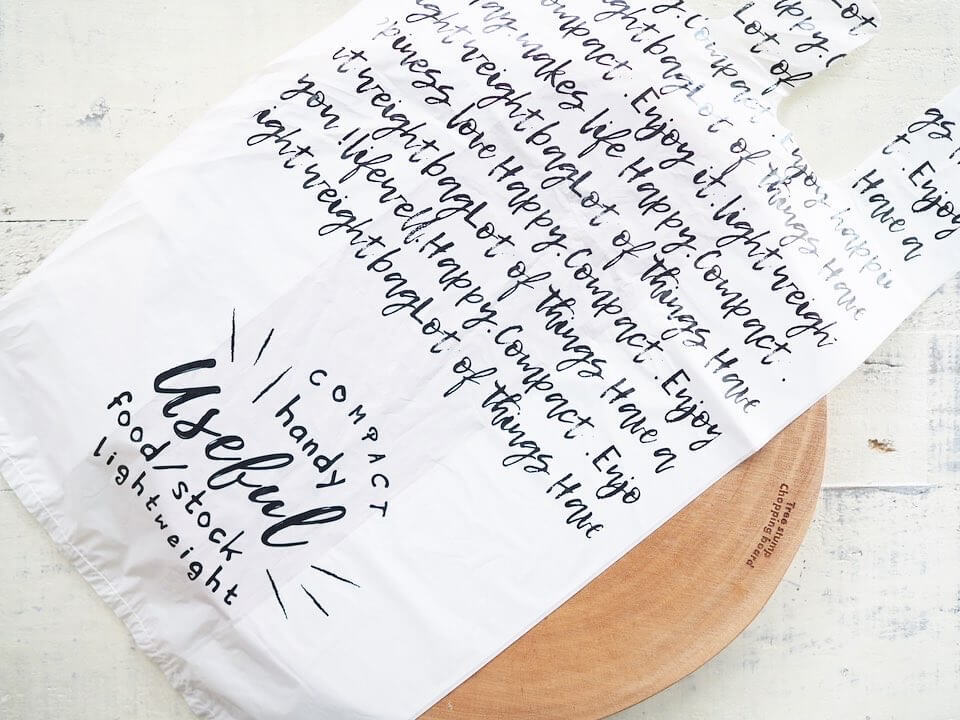 Lot
appy. C
Lot of
y. Compact. Enjoy happy
ghtbagLot of things Have
ompact. Enjoy it. lightweigh
ay makes life Happy. Compact.
ightweightbagLot of things Have
piness love Happy. Compact. Enjoy
itweightbagLot of things Have a
you! lifenwell. Happy. Compact. Enjo
ightweightbagLot of things Have
gs H
t. Enjoy
Have a
COMPACT
handy
Useful
food/stock
lightweight
Tree stump
Chopping board